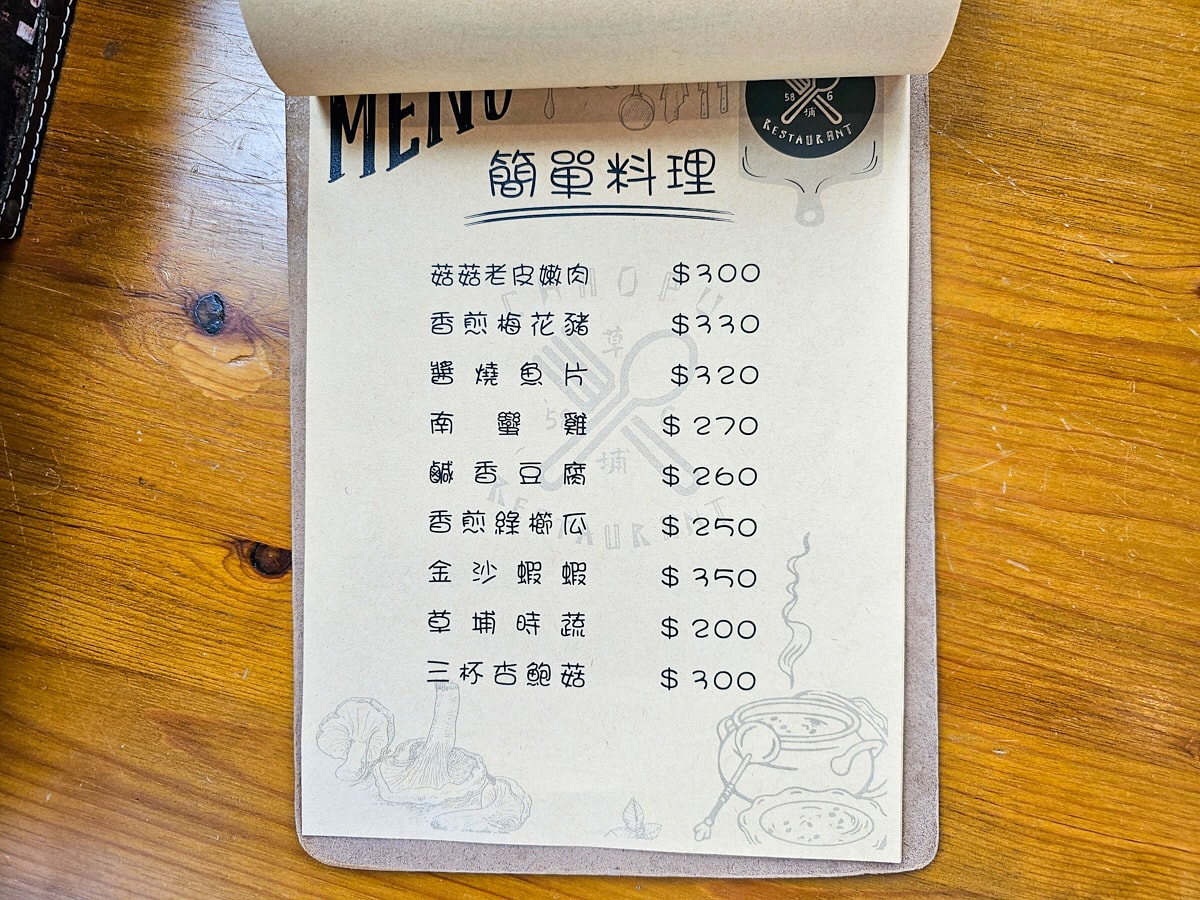 MENU
58 6
埔
RESTAURANT
簡單料理
菇菇老皮嫩肉 $300
香煎梅花豬 $330
醬燒魚片 $320
南蠻雞 $270
鹹香豆腐 $260
香煎綠櫛瓜 $250
金沙蝦蝦 $350
草埔時蔬 $200
三杯杏鮑菇 $300
CAHOPU
草
58 6
埔
RESTAURANT